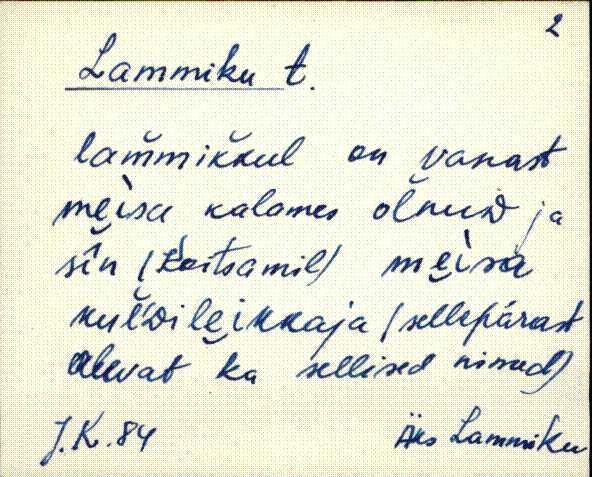 2
Lammiku t.
lam̆mik̆kul on vanast
mẹìsa kalames ol̆nud ja
sîn (Loitsamil) mẹìsa
kul̆'di lẹikkaja (sellepärast
olevat ka sellised nimed)
J.K. 84 Äks Lammiku